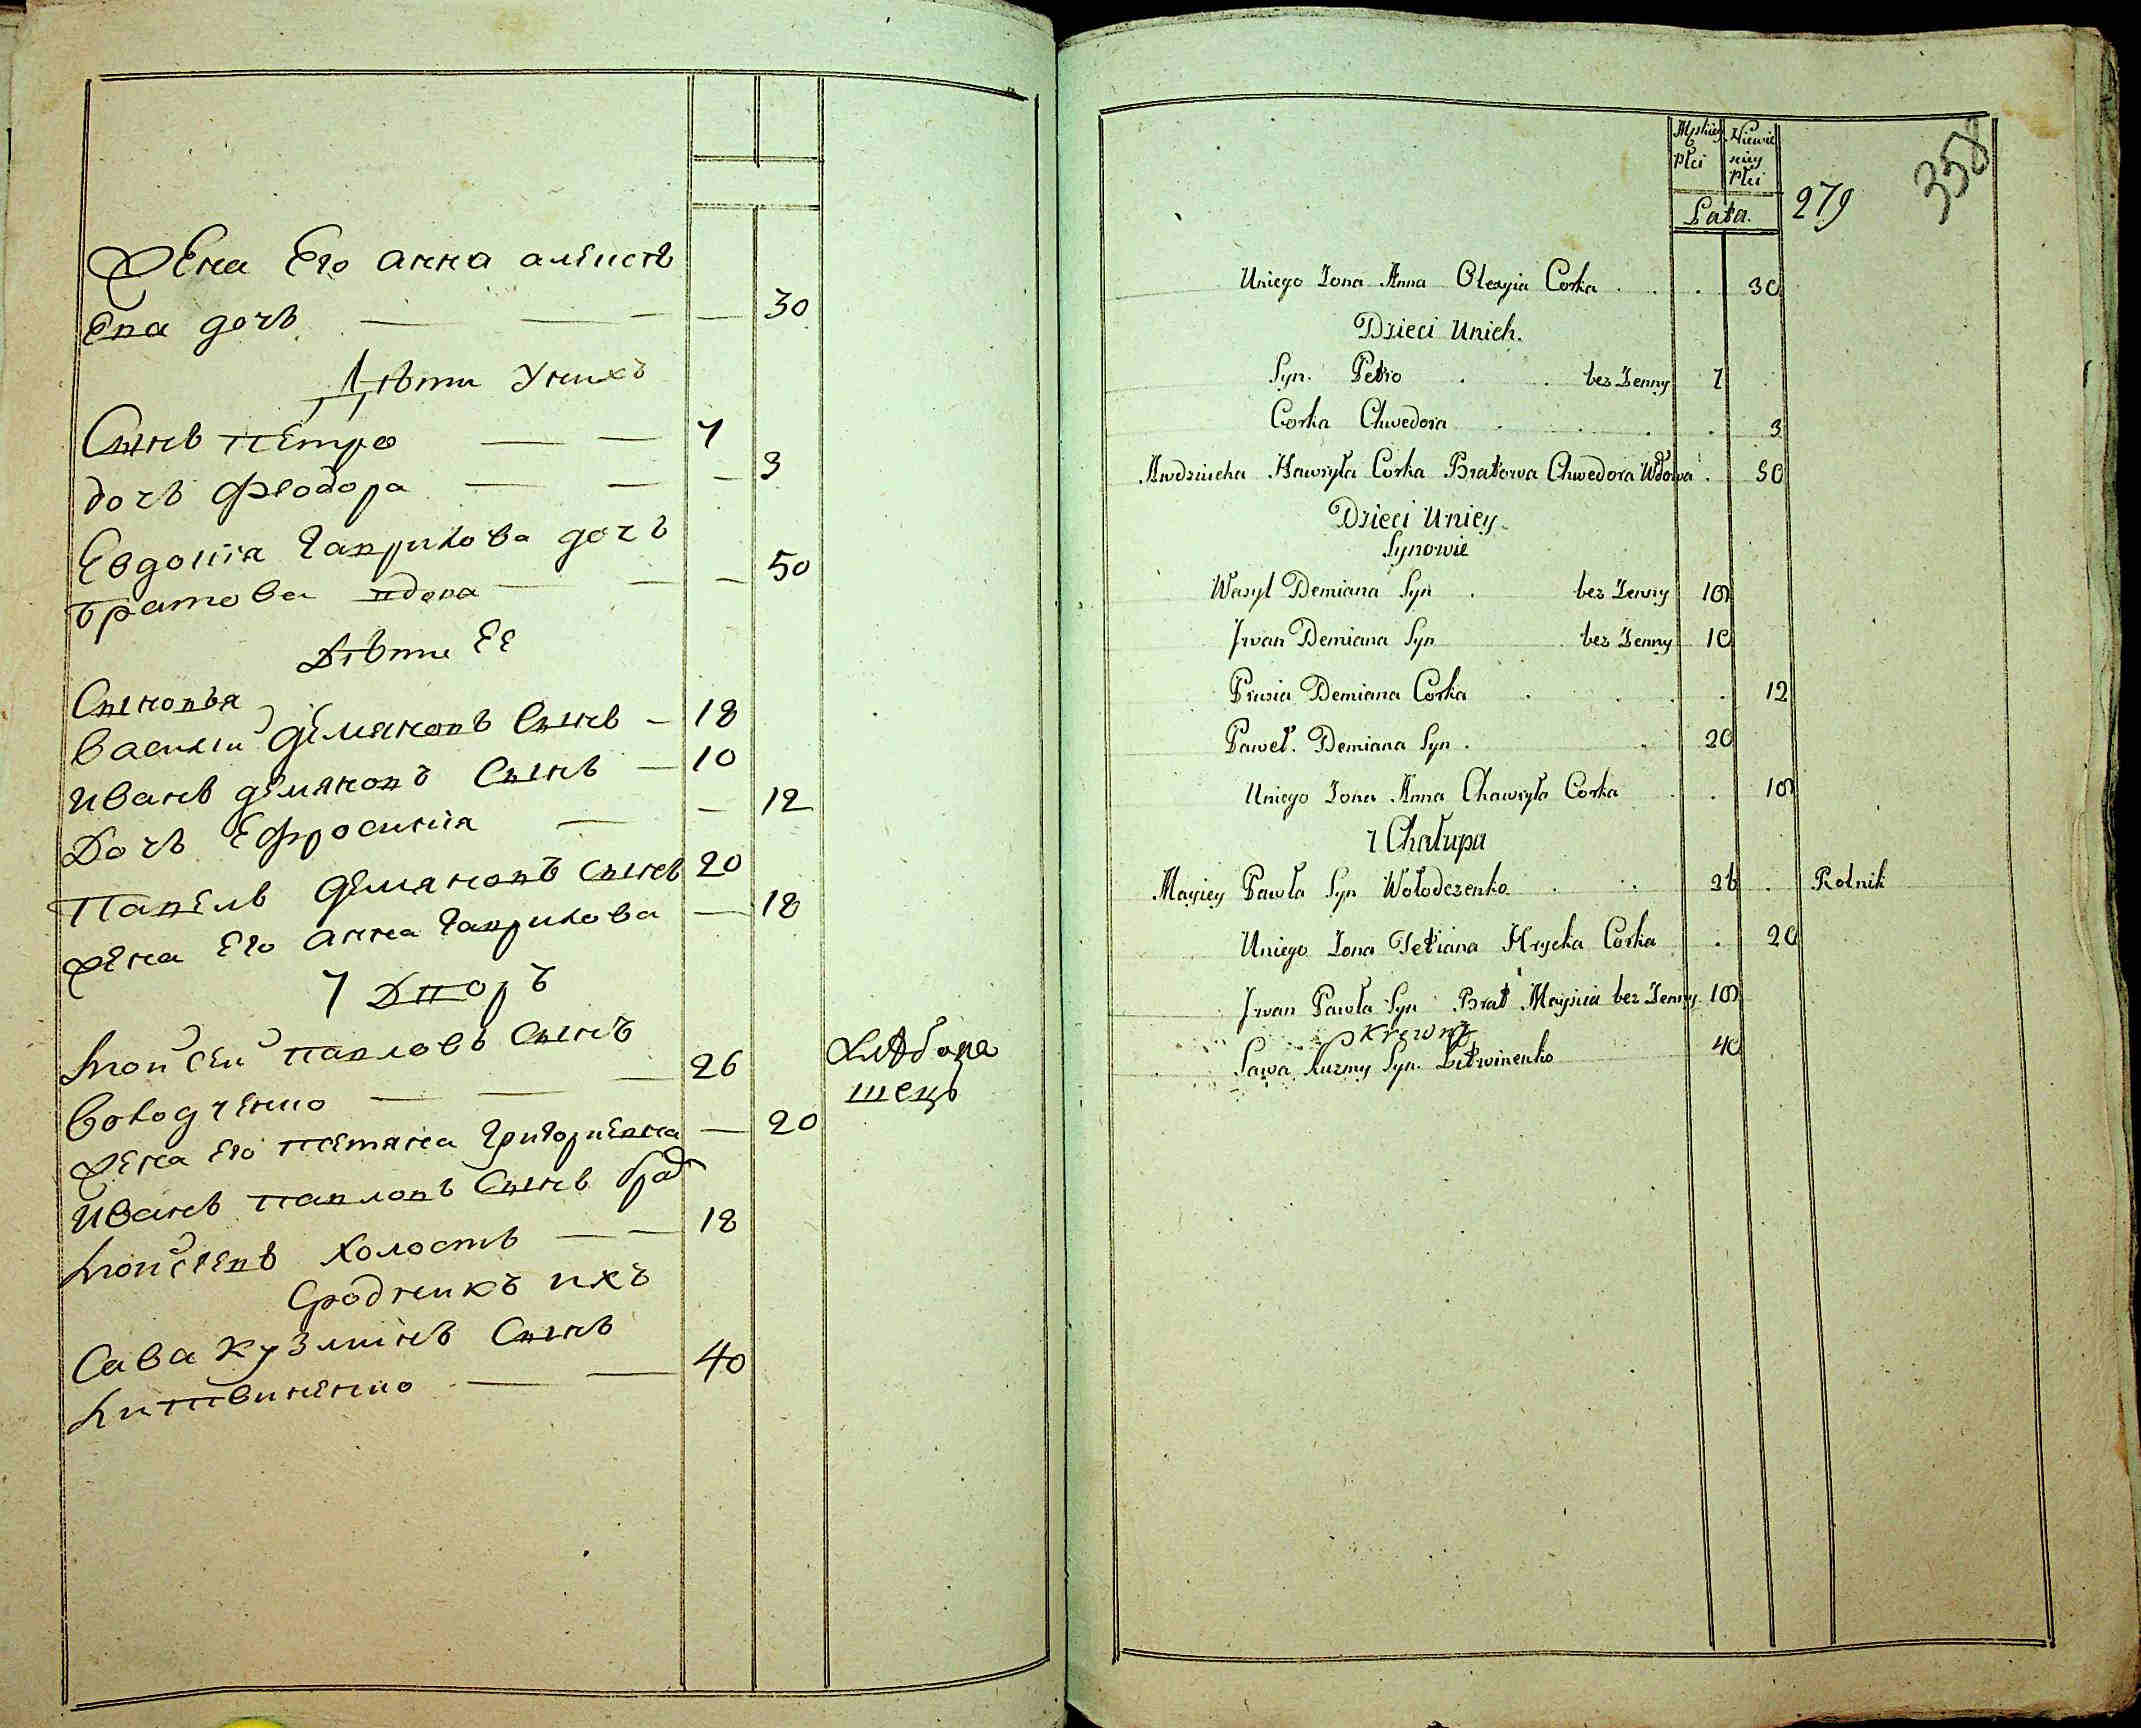 Жена Его анна алеисѣ
Ева дочь — — — — 30
Дѣти Унихъ
Сынъ Петро — — 7
дочь Феодора — — — 3
Евдокія гаврилова дочь
братова вдова — — — 50
Дѣти Ее
Сыновья
Василій демяновъ Сынъ — 18
Иванъ демяновъ Сынъ — 10
Дочь Ефросинія — — 12
Павелъ демяновъ сынъ 20
жена Его анна гаврилова — 18
7 Дворъ
Мойсей павловъ сынъ
володченко — — — 26 хлѣбопа
шецъ
жена Его тетяна григориевна — 20
Иванъ павловъ Сынъ брат
Мойсеевъ холостъ — — 18
Сродникъ ихъ
Сава кузминъ Сынъ
литвиненко — — 40
Męskiey Płci
Niewieściey Płci
Lata.
279
358
Uniego Zona Anna Olexyia Corka . . . 30
Dzieci Unich.
Syn. Petro . . bez Zenny 7 .
Corka Chwedora . . . . . 3
Awdziucha Hawryła Corka Bratowa Chwedora Wdowa . 50
Dzieci Uniey.
Synowie
Wasyl Demiana Syn . bez Zenny 18
Jwan Demiana Syn bez Zenny 10
Prusia Demiana Corka . . . . 12
Paweł. Demiana Syn . . 20
Uniego Zona Anna Chawryła Corka . . 18
7 Chałupa
Mayiey Pawła Syn Wołodczenko . . 26 . Rolnik
Uniego Zona Tetiana Hrycka Corka . 20
Jwan Pawła Syn Brat Mayieia bez Zenny. 18
Krewny
Sawa Kuzmy Syn. Litwinenko 40